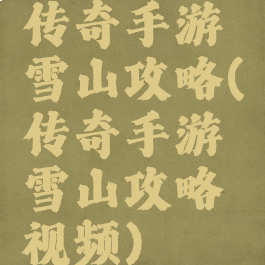 传奇手游
雪山攻略(
传奇手游
雪山攻略
视频)